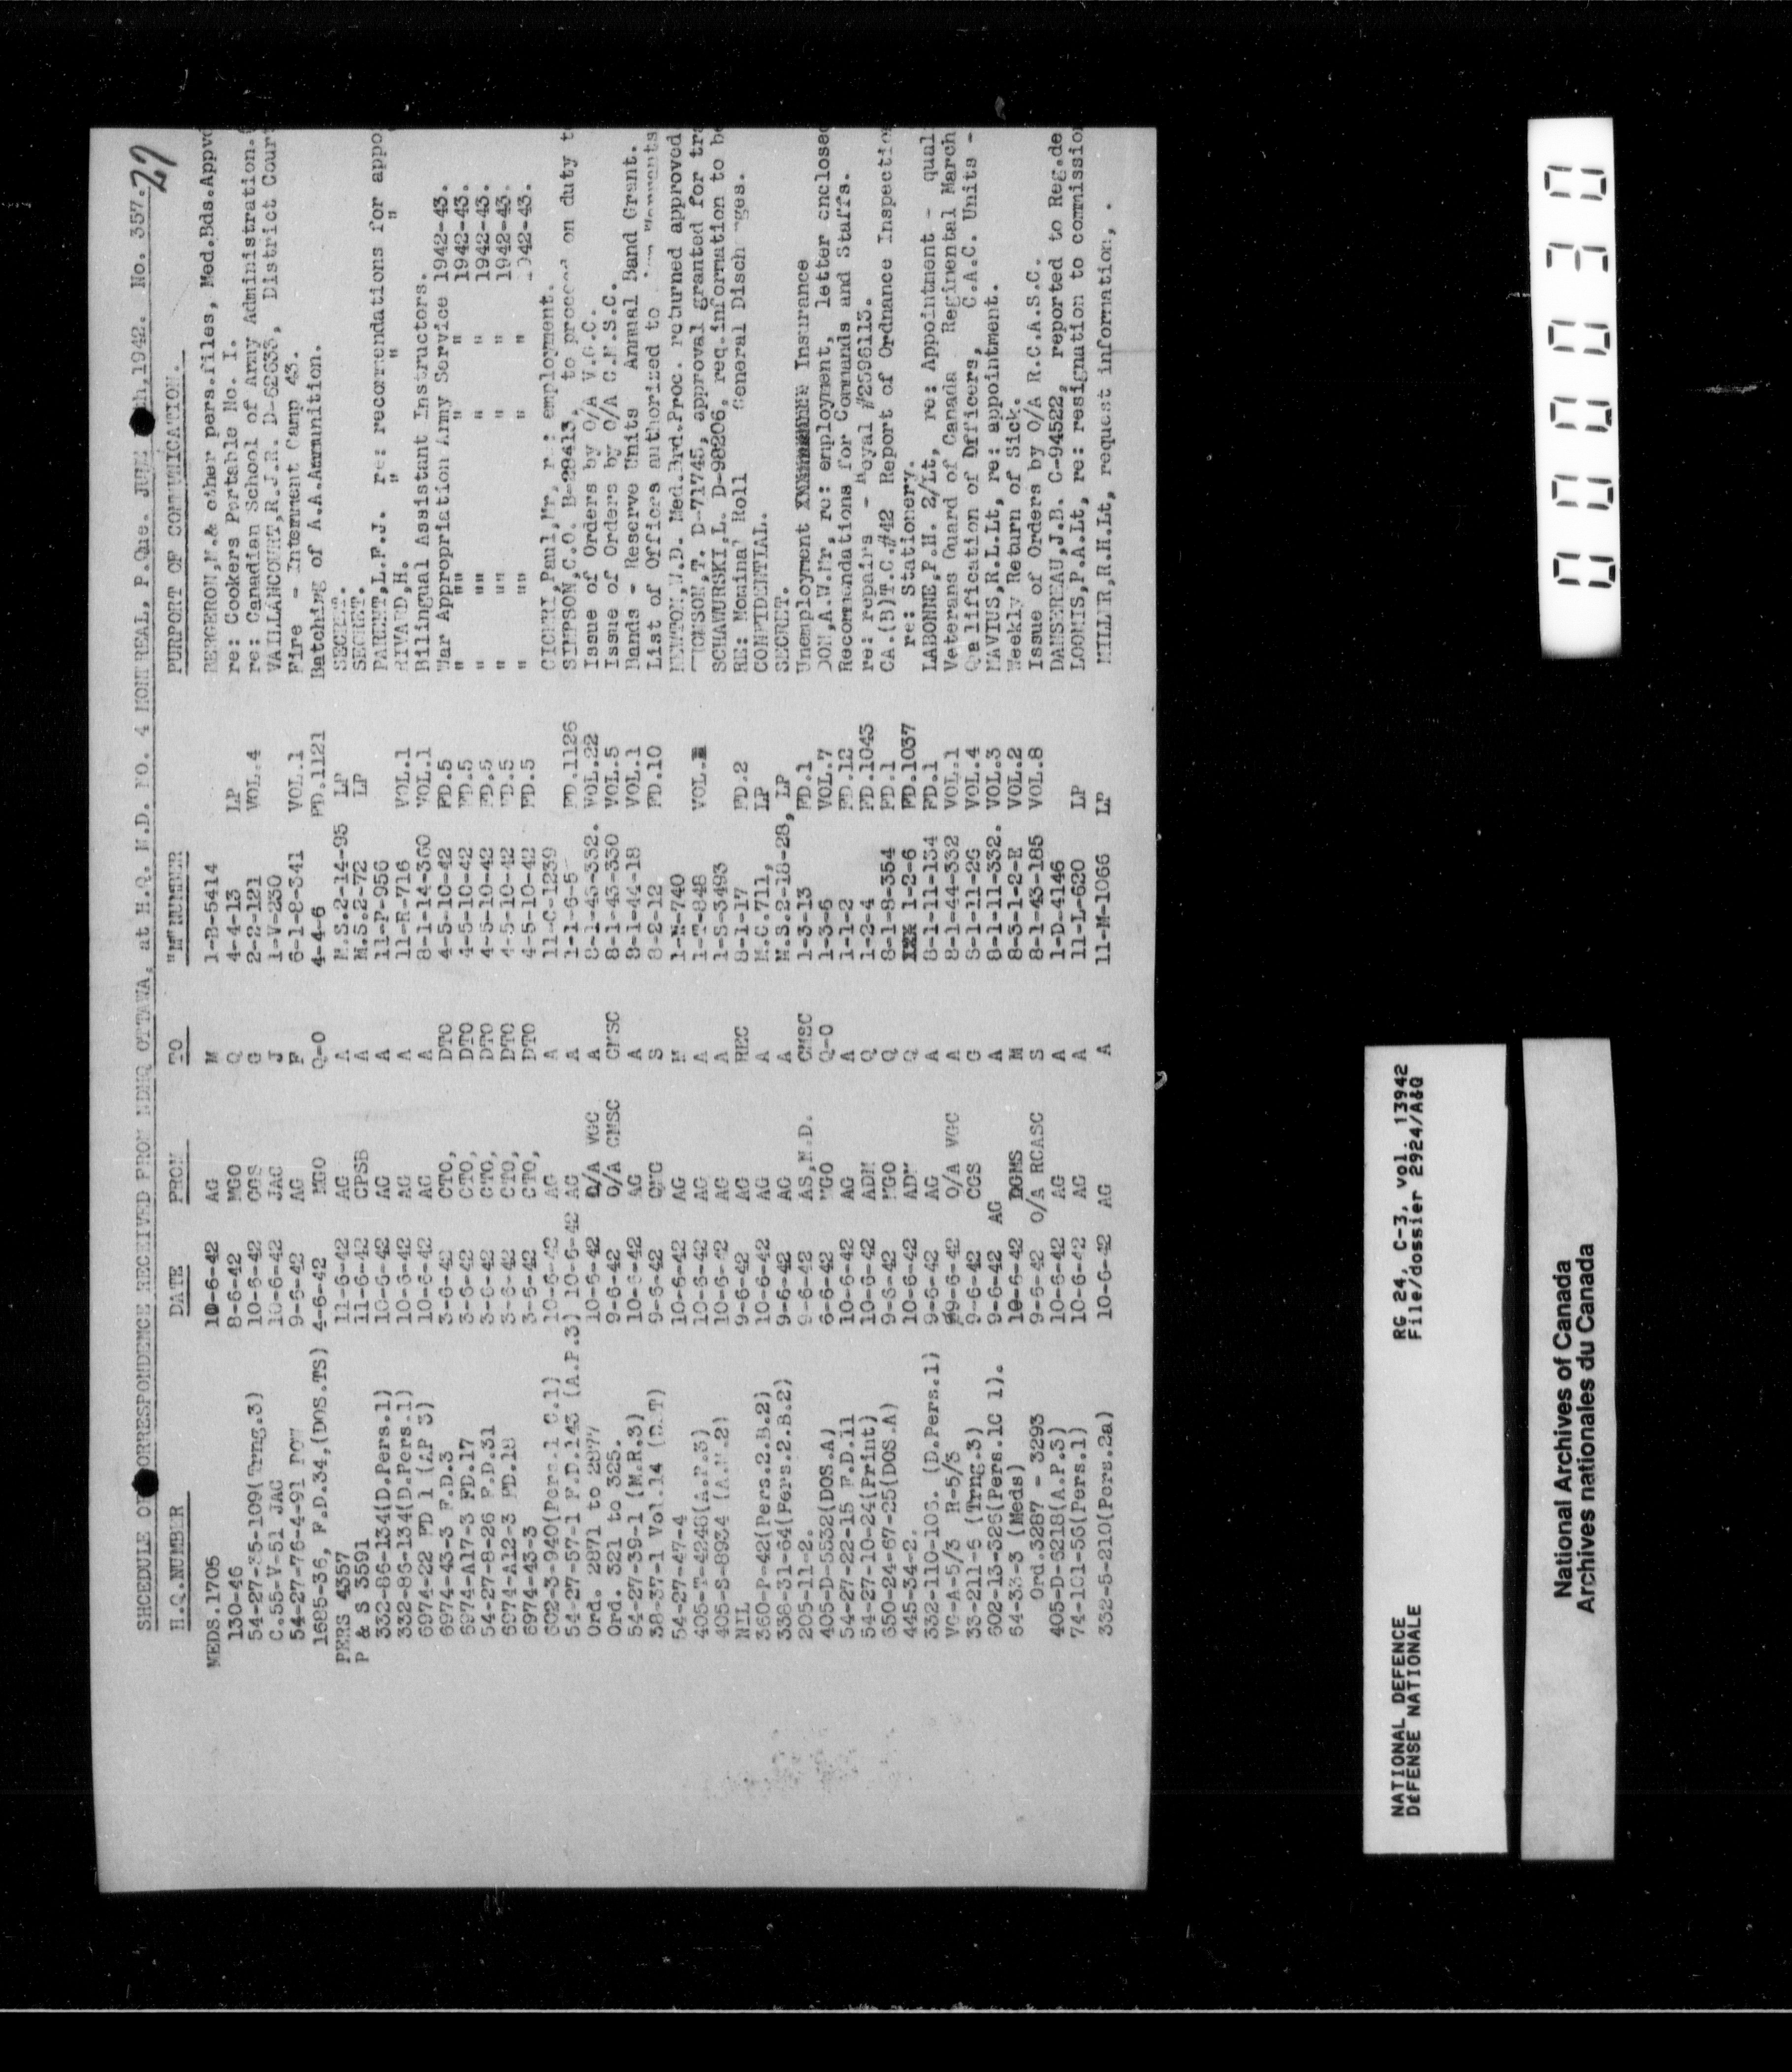 SHCEDULE OF CORRESPONDENCE RECEIVED FROM NDHQ OTTAWA, at H.Q. M.D. NO. 4 MONTREAL, P.Que. JUNE th,1942. No. 357.
27
H.Q.NUMBER DATE FROM TO "M" NUMBER PURPORT OF COMMUNICATION.
MEDS.1705 10-6-42 AG M 1-B-5414 BERGERON,M.& other pers.files, Med.Bds.Appvd
130-46 8-6-42 MGO Q 4-4-13 LP re: Cookers Portable No. I.
54-27-35-109(Trng.3) 10-6-42 CGS G 2-2-121 VOL.4 re: Canadian School of Army Administration.
C.55-V-51 JAG 10-6-42 JAG J 1-V-230 VAILLANCOURT,R.J.R. D-62633, District Court
54-27-76-4-91 POW 9-6-42 AG F 6-1-8-341 VOL.1 Fire - Internment Camp 43.
1685-36, F.D.34,(DOS.TS) 4-6-42 MGO Q-O 4-4-6 FD.1121 Batching of A.A.Ammunition.
PERS 4357 11-6-42 AG A M.S.2-14-95 LP SECRET.
P & S 3591 11-6-42 CPSB A M.S.2-72 LP SECRET.
332-86-134(D.Pers.1) 10-6-42 AG A 11-P-956 PARENT,L.F.J. re: recommendations for appo
332-86-134(D.Pers.1) 10-6-42 AG A 11-R-716 VOL.1 RIVARD,H. " " "
6974-22 FD 1 (AP 3) 10-6-42 AG A 8-1-14-360 VOL.1 Bilingual Assistant Instructors.
6974-43-3 F.D.3 3-6-42 CTO, DTO 4-5-10-42 FD.5 War Appropriation Army Service 1942-43.
6974-A17-3 FD.17 3-6-42 CTO, DTO 4-5-10-42 FD.5 " "" " " 1942-43.
54-27-8-26 F.D.31 3-6-42 CTO, DTO 4-5-10-42 FD.5 " "" " " 1942-43.
6974-A12-3 FD.18 3-6-42 CTO, DTO 4-5-10-42 FD.5 " "" " " 1942-43.
6974-43-3 3-6-42 CTO, DTO 4-5-10-42 FD.5 " "" " " 1942-43.
602-3-940(Pers.1 C.1) 10-6-42 AG A 11-C-1239 CICERI,Paul,Mr, re: employment.
54-27-57-1 F.D.143 (A.P.3) 10-6-42 AG A 1-1-6-5 FD.1126 SIMPSON,C.O. B-29413, to proceed on duty t
Ord. 2871 to 2877 10-6-42 O/A VGC A 8-1-43-332. VOL.22 Issue of Orders by O/A V.G.C.
Ord. 321 to 325. 9-6-42 O/A CMSC CMSC 8-1-43-330 VOL.5 Issue of Orders by O/A C.M.S.C.
54-27-39-1 (M.R.3) 10-6-42 AG A 8-1-44-18 VOL.1 Bands - Reserve Units Annual Band Grant.
38-37-1 Vol.14 (D.T) 9-6-42 QMG S 8-2-12 FD.10 List of Offices authorized to Warrants
54-27-47-4 10-6-42 AG M 1-N-740 NEWTON,W.D. Med.Brd.Proc. returned approved
405-T-4246(A.P.3) 10-6-42 AG A 1-T-848 VOL. THOMSON,T. D-71745, approval granted for tra
405-S-8934 (A.M.2) 10-6-42 AG A 1-S-3493 SCHAWURSKI,L. D-98206, req.information to be
NIL 9-6-42 AG REC 8-1-17 FD.2 RE: Nominal Roll General Discharges.
360-P-42(Pers.2.B.2) 10-6-42 AG A M.C.711, LP CONFIDENTIAL.
338-31-64(Pers.2.B.2) 9-6-42 AG A M.S.2-18-28, LP SECRET.
205-11-2. 9-6-42 AS,N.D. CMSC 1-3-13 FD.1 Unemployment Insurance
405-D-5532(DOS.A) 6-6-42 MGO Q-O 1-3-6 VOL.7 DON,A.W.Mr, re: employment, letter enclosed
54-27-22-15 F.D.11 10-6-42 AG A 1-1-2 FD.12 Recommendations for Commands and Staffs.
54-27-10-24(Print) 10-6-42 ADM Q 1-2-4 FD.1043 re: repairs - Royal #2596113.
650-24-67-25(DOS.A) 9-6-42 MGO Q 8-1-8-354 FD.1 CA.(B)T.C.#42 Report of Ordnance Inspection
445-34-2. 10-6-42 ADM Q XXX 1-2-6 FD.1037 re: Stationery.
332-110-106. (D.Pers.1) 9-6-42 AG A 8-1-11-134 FD.1 LABONNE,P.H. 2/Lt, re: Appointment - qual
VG-A-5/3 R-5/3 9-6-42 O/A VGC A 8-1-44-332 VOL.1 Veterans Guard of Canada Regimental March
33-211-6 (Trng.3) 9-6-42 CGS G 8-1-11-26 VOL.4 Qualification of Officers, C.A.C. Units -
602-13-326(Pers.1C 1). 9-6-42 AG A 8-1-11-332. VOL.3 MAVIUS,R.L.Lt, re: appointment.
54-33-3 (Meds) 10-6-42 DGMS M 8-3-1-2-E VOL.2 Weekly Return of Sick.
Ord.3287 - 3293 9-6-42 O/A RCASC S 8-1-43-185 VOL.8 Issue of Orders by O/A R.C.A.S.C.
405-D-6218(A.P.3) 10-6-42 AG A 1-D-4146 DANSEREAU,J.B. C-94522, reported to Reg.de
74-101-56(Pers.1) 10-6-42 AG A 11-L-620 LP LOOMIS,P.A.Lt, re: resignation to commission
332-5-210(Pers.2a) 10-6-42 AG A 11-M-1066 LP MILLER,R.H.Lt, request information, .
NATIONAL DEFENCE RG 24, C-3, vol. 13942
DÉFENSE NATIONALE File/dossier 2924/A&Q
National Archives of Canada
Archives nationales du Canada
000030